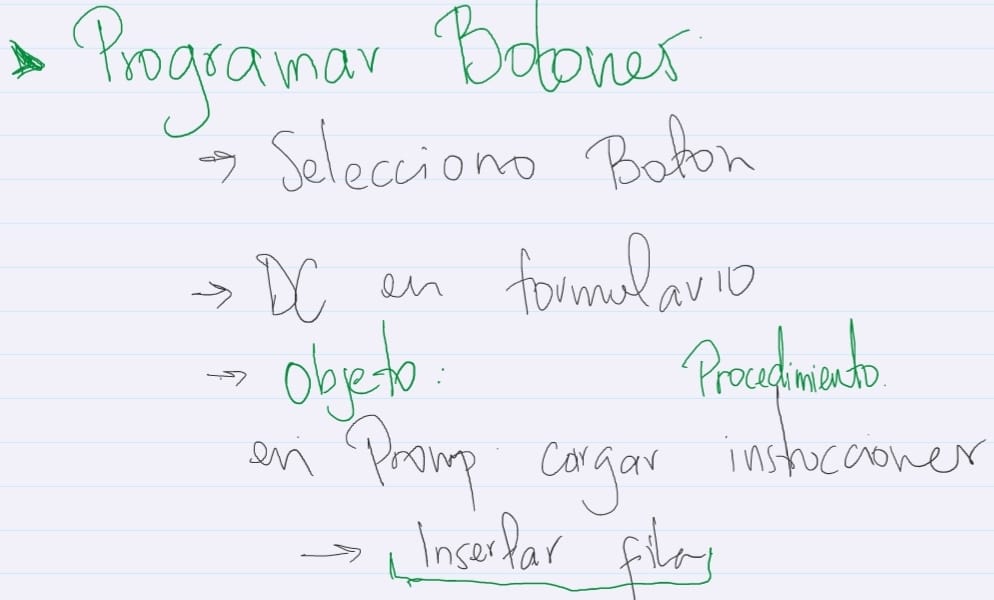 Programar Botones
→ Selecciono Boton
→ DC en formulario
→ Objeto: Procedimiento.
en Promp cargar instrucciones
→ Insertar fila